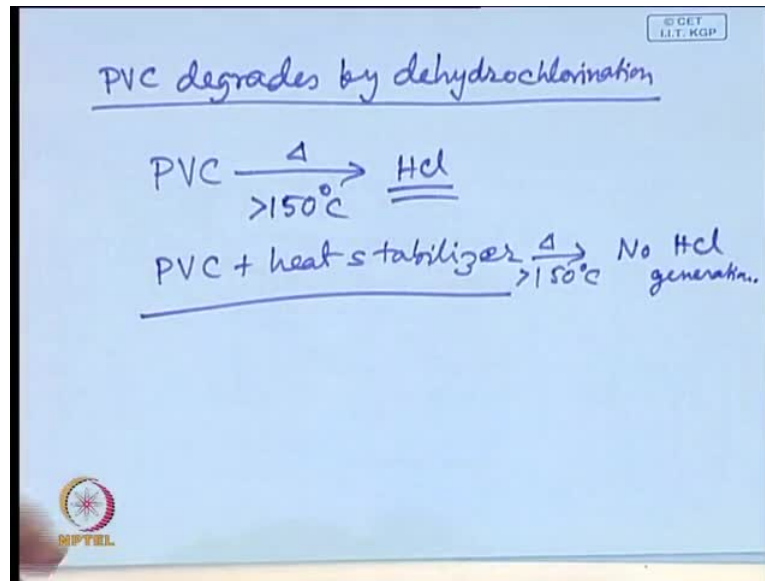 © CET
I.I.T. KGP
PVC degrades by dehydrochlorination
PVC Δ HCl
>150°C
PVC + heat stabilizer Δ No HCl
>150°C generation.
NPTEL